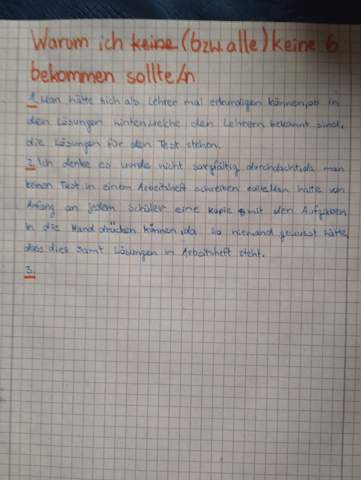 Warum ich keine (bzw. alle) keine 6
bekommen sollte/n
1. Man hätte sich als Lehrer mal erkundigen können, ob in
den Lösungen hinten, welche den Lehrern bekannt sind,
die Lösungen für den Test stehen.
2. Ich denke es wurde nicht sorgfältig durchdacht, da man
keinen Test in einem Arbeitsheft schreiben sollte. Man hätte von
Anfang an jedem Schüler eine Kopie mit den Aufgaben
in die Hand drücken können, da so niemand gewusst hätte,
dass dies samt Lösungen im Arbeitsheft steht.
3.